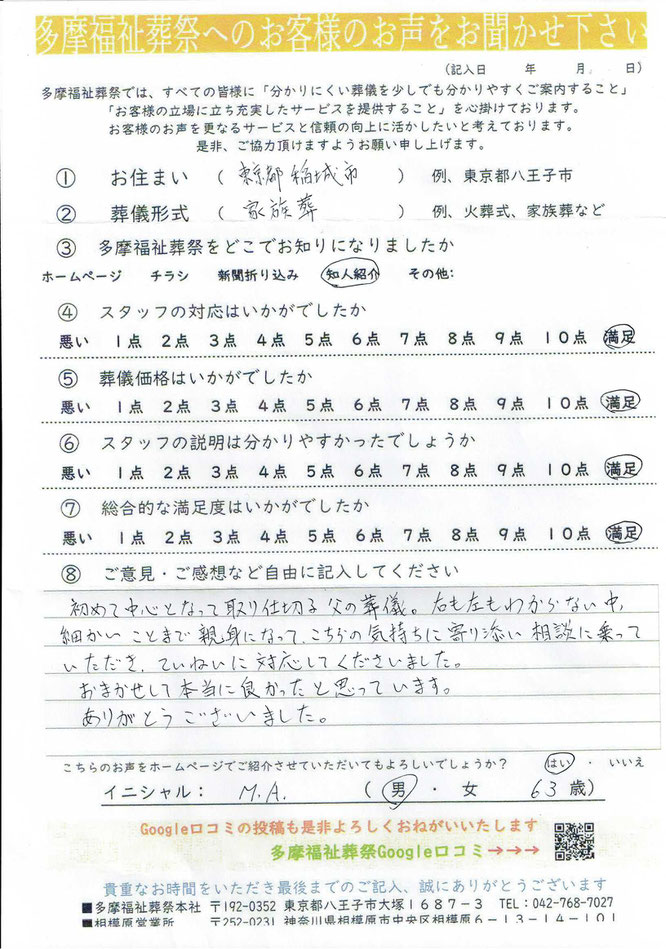 多摩福祉葬祭へのお客様のお声をお聞かせ下さい
(記入日　　年　　月　　日)
多摩福祉葬祭では、すべての皆様に「分かりにくい葬儀を少しでも分かりやすくご案内すること」
「お客様の立場に立ち充実したサービスを提供すること」を心掛けております。
お客様のお声を更なるサービスと信頼の向上に活かしたいと考えております。
是非、ご協力頂けますようお願い申し上げます。
① お住まい （ 東京都稲城市 ） 例、東京都八王子市
② 葬儀形式 （ 家族葬 ） 例、火葬式、家族葬など
③ 多摩福祉葬祭をどこでお知りになりましたか
ホームページ チラシ 新聞折り込み 知人紹介 その他:
④ スタッフの対応はいかがでしたか
悪い 1点 2点 3点 4点 5点 6点 7点 8点 9点 10点 満足
⑤ 葬儀価格はいかがでしたか
悪い 1点 2点 3点 4点 5点 6点 7点 8点 9点 10点 満足
⑥ スタッフの説明は分かりやすかったでしょうか
悪い 1点 2点 3点 4点 5点 6点 7点 8点 9点 10点 満足
⑦ 総合的な満足度はいかがでしたか
悪い 1点 2点 3点 4点 5点 6点 7点 8点 9点 10点 満足
⑧ ご意見・ご感想など自由に記入してください
初めて中心となって取り仕切る父の葬儀。右も左もわからない中、
細かいことまで親身になって、こちらの気持ちに寄り添い相談に乗って
いただき、ていねいに対応してくださいました。
おまかせして本当に良かったと思っています。
ありがとうございました。
こちらのお声をホームページでご紹介させていただいてもよろしいでしょうか？ はい ・ いいえ
イニシャル： M.A. （ 男 ・ 女 63歳）
Google口コミの投稿も是非よろしくおねがいいたします
多摩福祉葬祭Google口コミ→→→
貴重なお時間をいただき最後までのご記入、誠にありがとうございます
■多摩福祉葬祭本社 〒192-0352 東京都八王子市大塚1687-3 TEL:042-768-7027
■相模原営業所 〒252-0231 神奈川県相模原市中央区相模原6-13-14-101